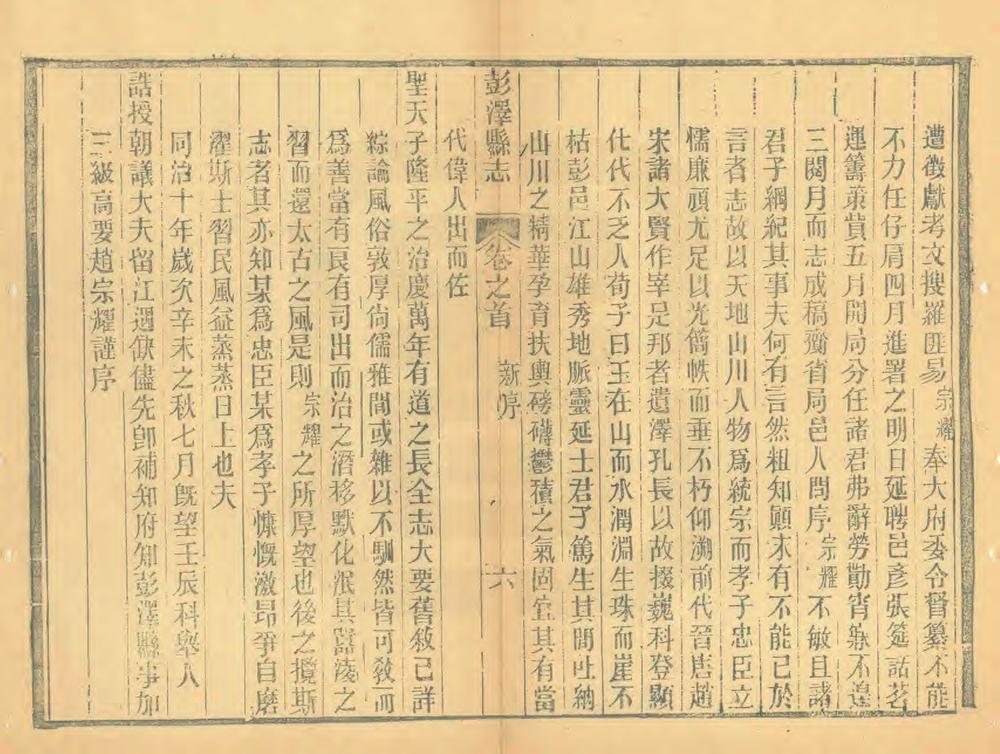 遭徵獻考文搜羅匪易宗耀奉大府委令督纂不能
不力任仔肩四月進署之明日延聘邑彥張筵話茗
運籌策貲五月開局分任諸君弗辭勞勩宵縣不遑
三閱月而志成稿齎省局邑人問序宗耀不敏且諸
君子綱紀其事夫何有言然粗知顛末有不能已於
言者志故以天地山川人物爲統宗而孝子忠臣立
懦廉頑尤足以光簡帙而垂不朽仰溯前代晉唐趙
宋諸大賢作宰是邦者遺澤孔長以故掇巍科登顯
仕代不乏人荀子曰玉在山而水潤淵生珠而崖不
枯彭邑江山雄秀地脈靈延士君子篤生其間吐納
山川之精華孕育扶輿磅礴鬱積之氣固宜其有當
彭澤縣志 卷之首 新序 六
代偉人出而佐
聖天子隆平之治慶萬年有道之長全志大要舊敘已詳
綜論風俗敦厚尙儒雅間或雜以不馴然皆可教而
爲善當有良有司出而治之潛移默化泯其囂淩之
習而還太古之風是則宗耀之所厚望也後之攬斯
志者其亦知某爲忠臣某爲孝子慷慨激昂爭自磨
濯斯士習民風益蒸蒸日上也夫
同治十年歲次辛未之秋七月旣望壬辰科舉人
誥授朝議大夫留江遇缺儘先卽補知府知彭澤縣事加
三級高要趙宗耀謹序